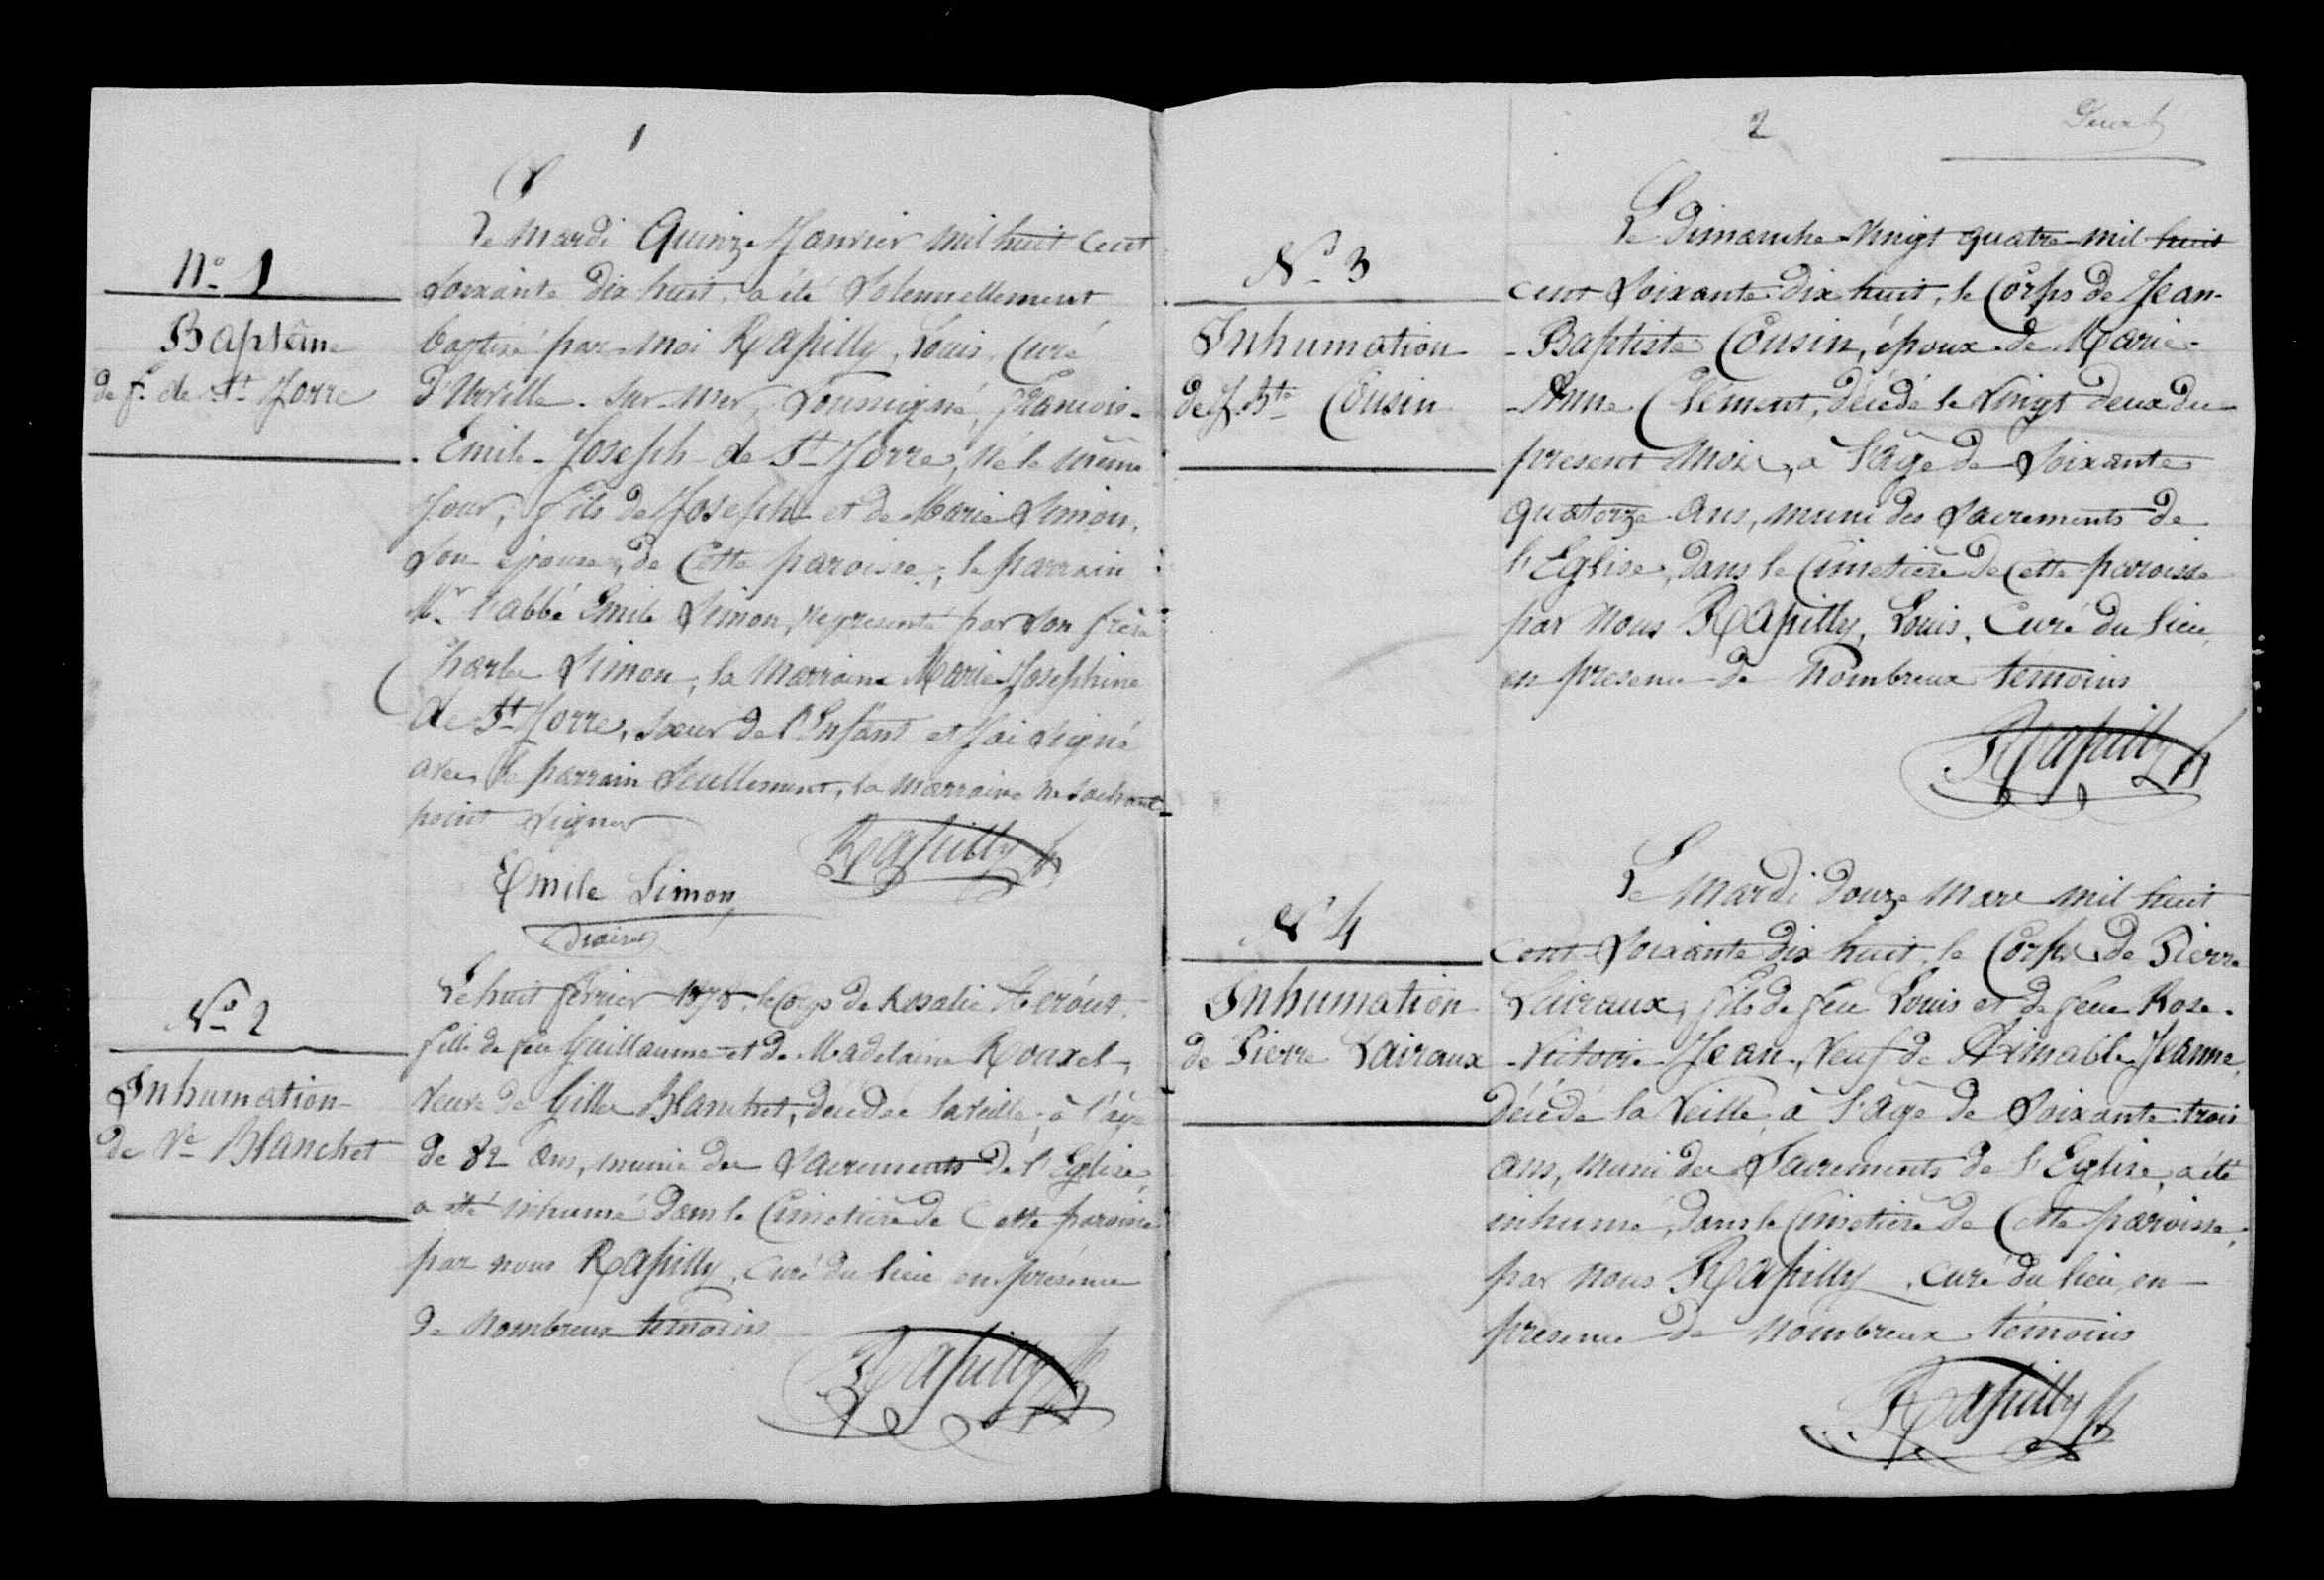 1
N° 1
Baptême
de f. de St Jorre
Le mardi Quinze Janvier mil huit cent
soixante dix huit, a été solennellement
baptisé par moi Rapilly, Louis, Curé
d'Urville-sur-mer, soussigné, François-
-Emile-Joseph de St Jorre, né le même
jour, fils de Joseph et de Marie Simon,
son épouse, de cette paroisse; le parrain
Mr l'abbé Emile Simon, représenté par son frère
Charles Simon; la marraine Marie Josephine
de St Jorre, sœur de l'Enfant et j'ai signé
avec le parrain seullement, la marraine ne sachant
point signer
Rapilly
Emile Simon
N° 2
Inhumation
de Ve Blanchet
Le huit février 1878, le corps de Rosalie Hérout,
fille de feu Guillaume et de Madelaine Rouxel,
veuve de Gilles Blanchet, décédée la veille, à l'âge
de 82 ans, munie des sacrements de l'Eglise,
a été inhumé dans le Cimetière de Cette paroisse
par nous Rapilly, curé du lieu en présence
de nombreux témoins
Rapilly
2
Deux
N° 3
Inhumation
de J. Bte Cousin
Le Dimanche vingt quatre mil huit
cent soixante dix huit, le Corps de Jean-
-Baptiste Cousin, époux de Marie-
-Anne Clément, décédé le vingt deux du
present mois, à l'âge de soixante
quatorze ans, muni des sacrements de
l'Eglise, dans le Cimetière de Cette paroisse
par nous Rapilly, Louis, Curé du lieu,
en presence de nombreux témoins
Rapilly
N° 4
Inhumation
de Pierre Lairaux
Le mardi douze mars mil huit
cent soixante dix huit, le Corps de Pierre
Lairaux, fils de feu Louis et de feue Rose-
-Victoire Jean, veuf de Aimable Jeanne,
décédé la veille, à l'âge de soixante trois
ans, muni des Sacrements de l'Eglise, a été
inhumé, dans le Cimetière de Cette paroisse,
par nous Rapilly, curé du lieu, en
presence de nombreux témoins
Rapilly